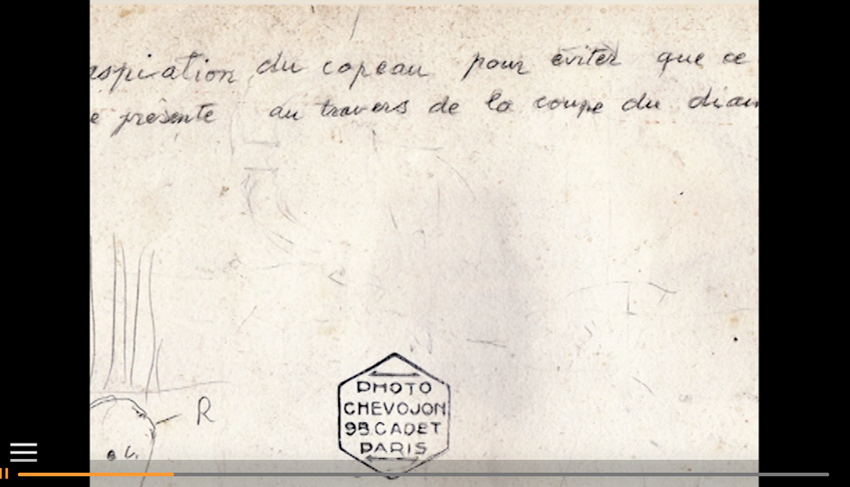 aspiration du copeau pour éviter que ce
présente au travers de la coupe du
R
PHOTO
CHEVOJON
9B.CADET
PARIS